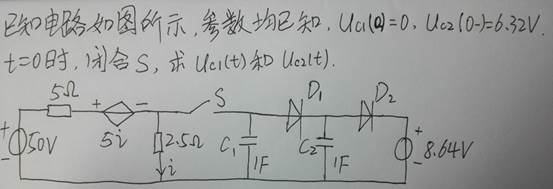 已知电路如图所示,参数均已知,Uc1(0)=0,Uc2(0-)=6.32V.
t=0时,闭合S,求Uc1(t)和Uc2(t).
5Ω
+ -
S
D1
D2
+
50V
-
5i
2.5Ω
i
C1
1F
C2
1F
+
8.64V
-